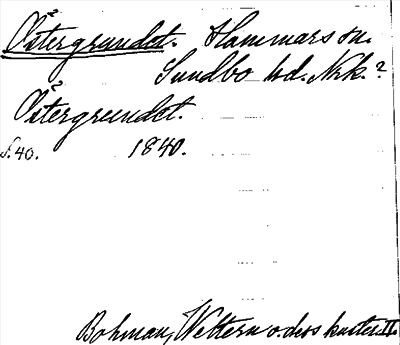 Östergrundet. Hammars sn.
Sundbo hd. Nrk.?
Östergrundet.
s. 40. 1840.
Bohman, Wettern o. dess kuster. II.